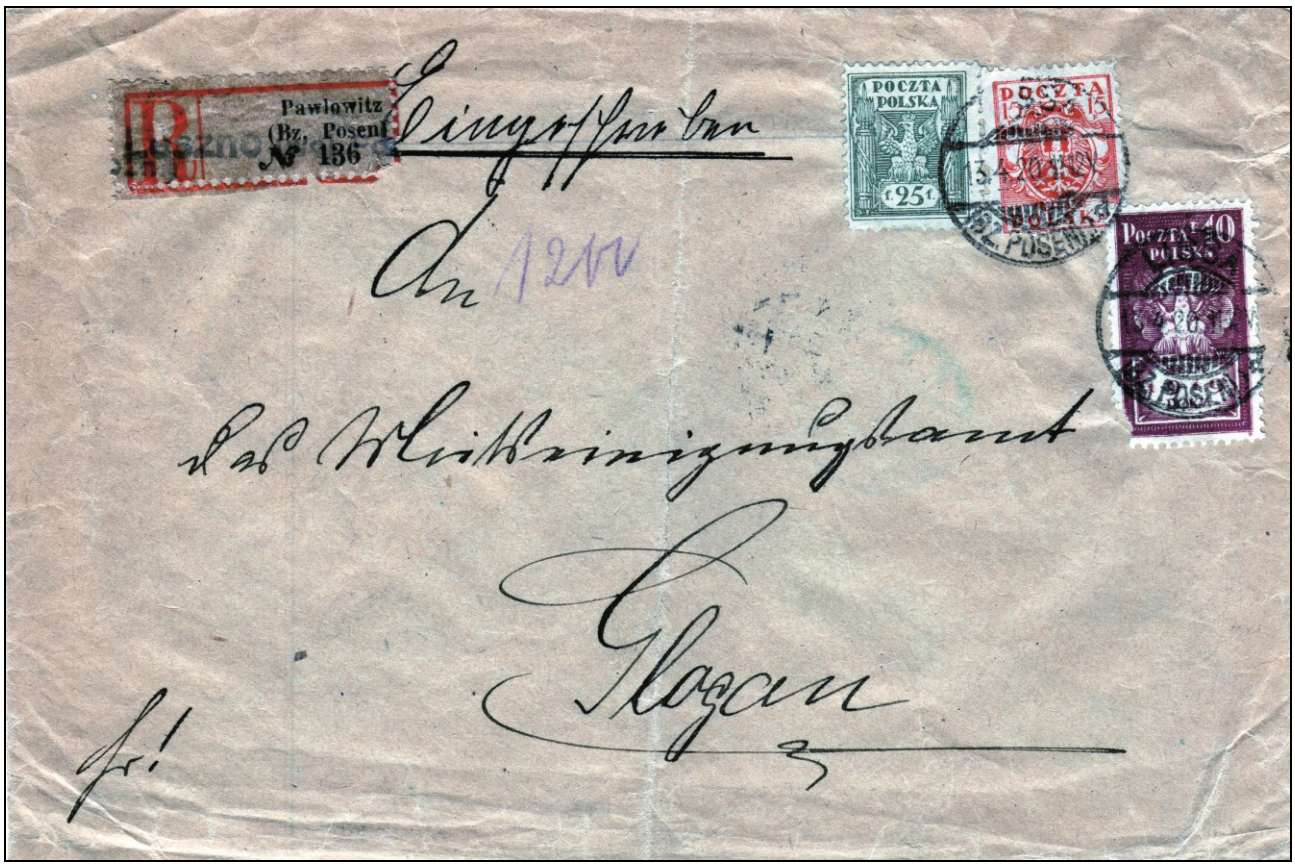 R
Pawlowitz
(Bz. Posen)
№ 136
Eingeschrieben
POCZTA
POLSKA
f. 25 f.
15 15
POCZTA
POLSKA
13.4.20.
(BZ. POSEN)
POCZTA 10
POLSKA
4.20.
(BZ. POSEN)
An
das Mietseinigungsamt
Glogau
fr!